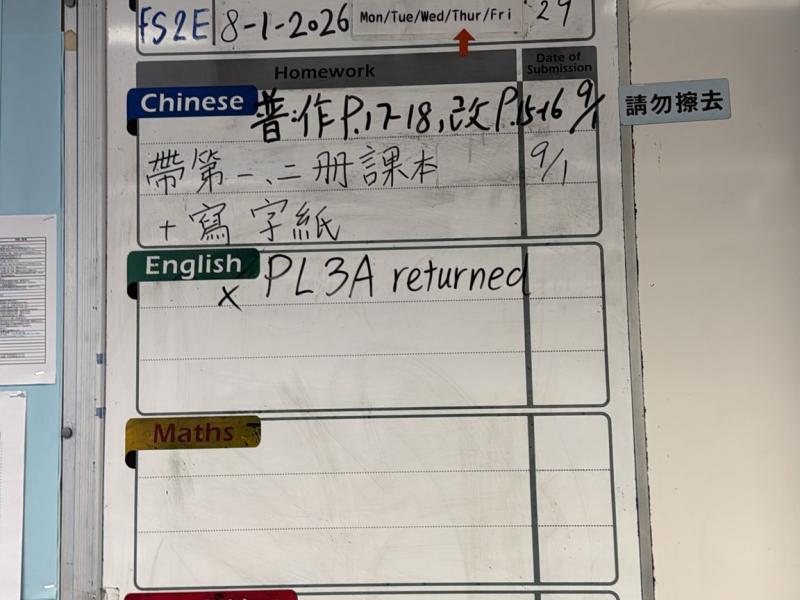 FS2E 8-1-2026 Mon/Tue/Wed/Thur/Fri 29
Homework Date of Submission
Chinese 普:作P.17-18,改P.15-16 9/1
請勿擦去
帶第一、二冊課本 9/1
+ 寫字紙
English x PL3A returned
Maths